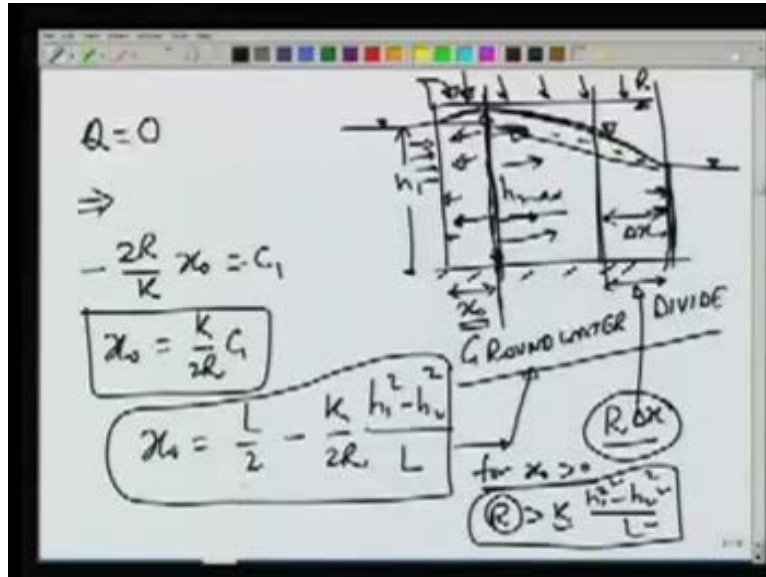 Q = 0
⇒
- 2R/K x₀ = C₁
x₀ = K/2R C₁
x₀ = L/2 - K/2R (h₁² - h₂²)/L
R
h₁
hmax
Δx
x₀
GROUNDWATER DIVIDE
R Δx
for x₀ > 0
R > K (h₁² - h₂²)/L²